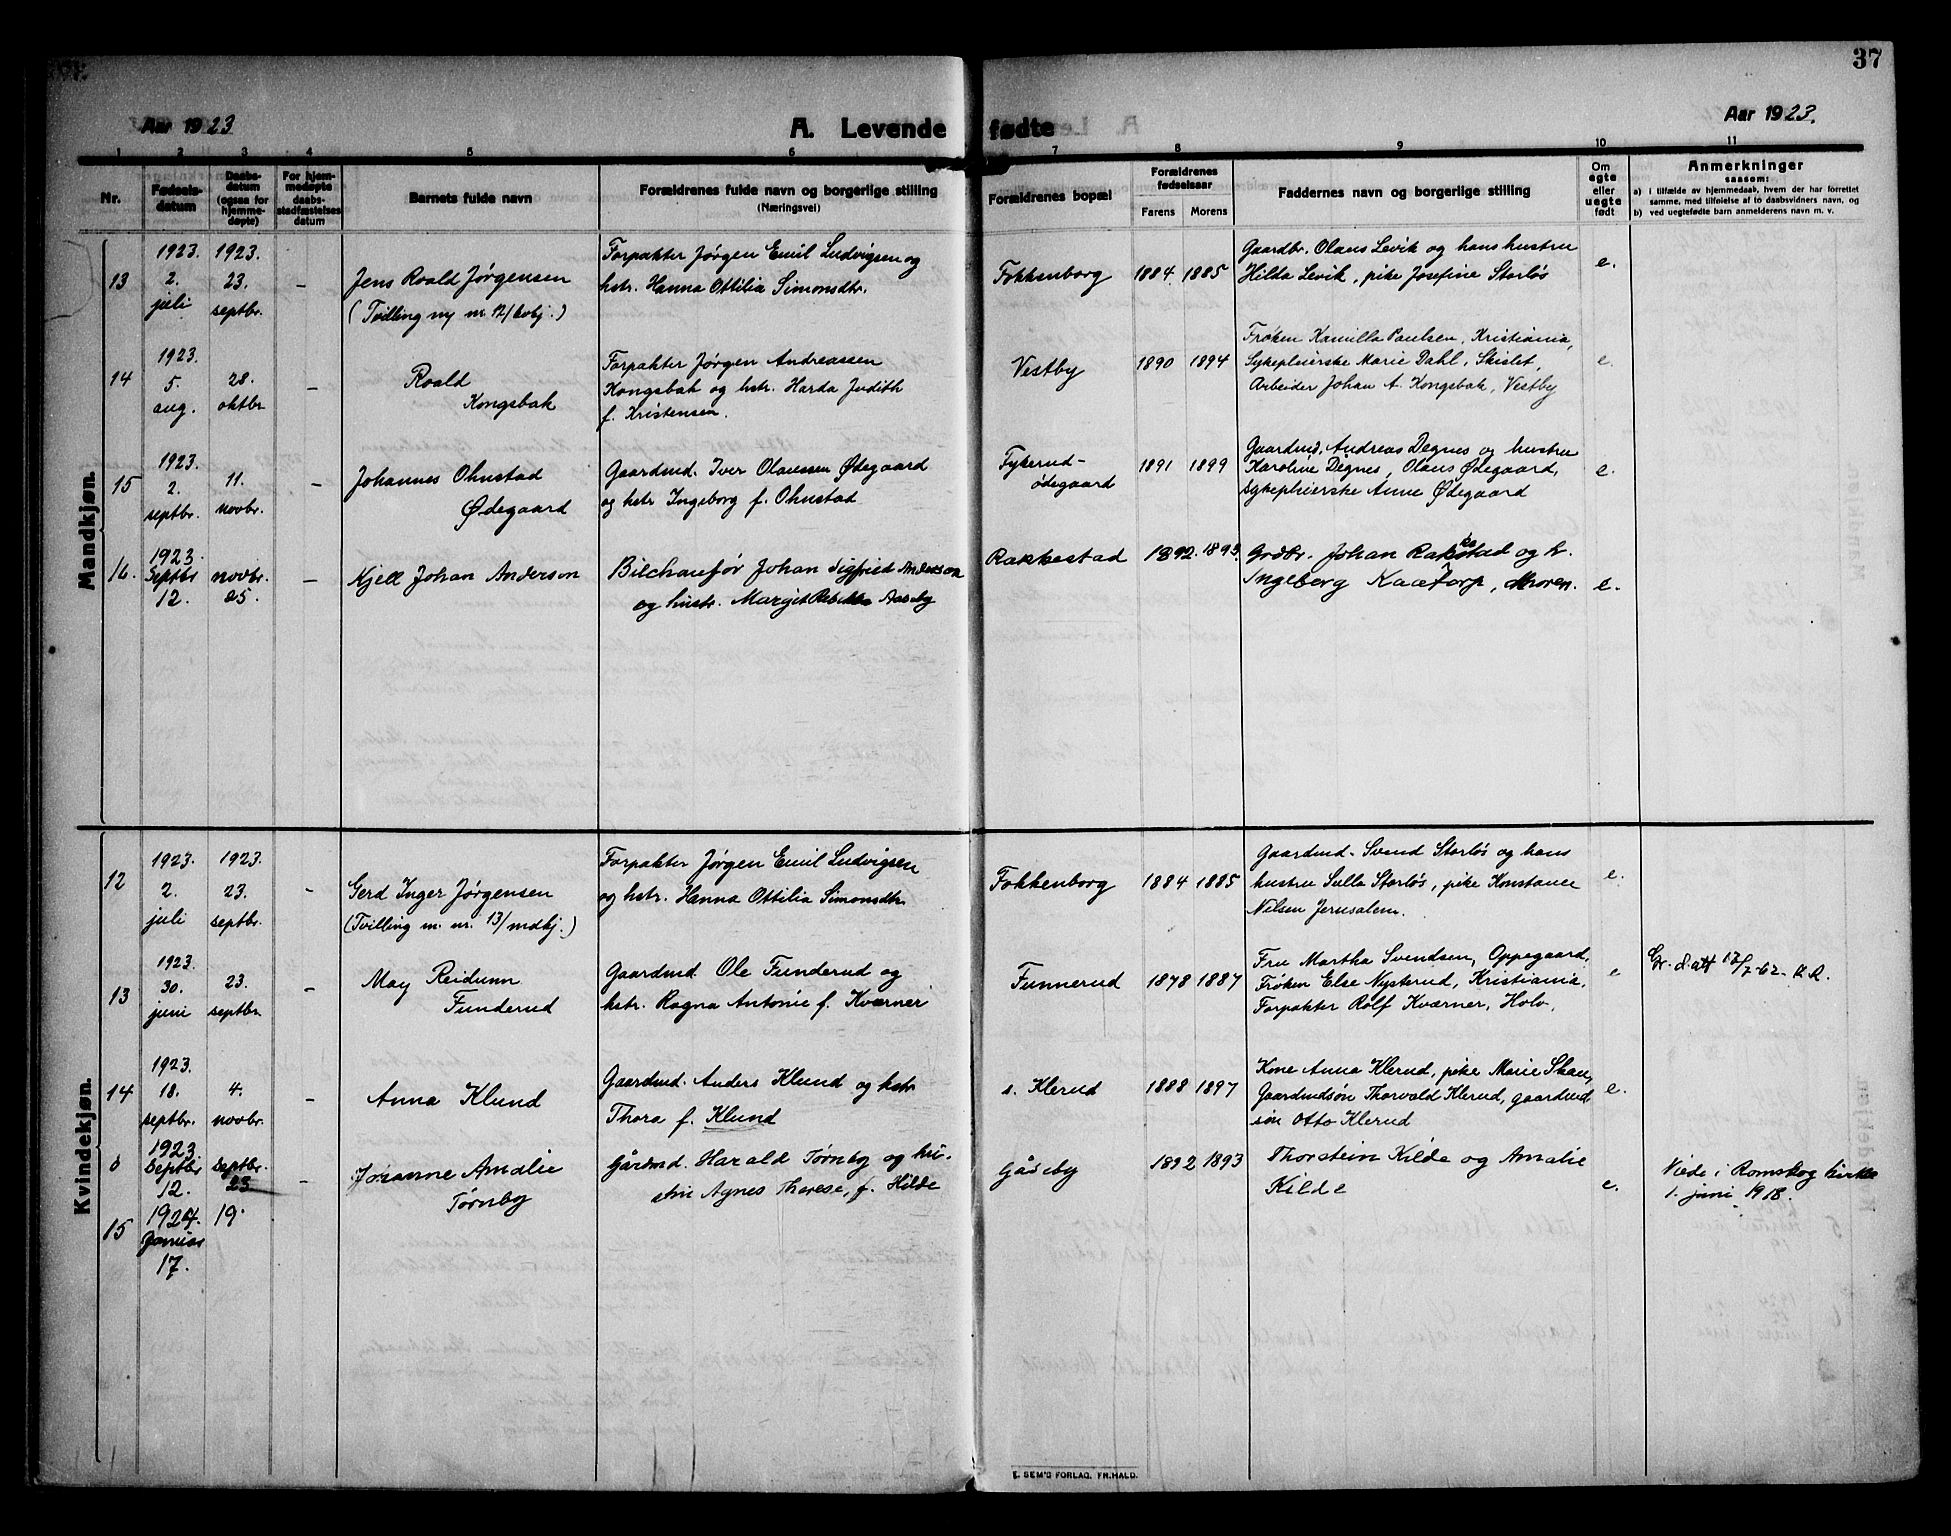 37
Aar 1923
A. Levende fødte
Aar 1923.
1 2 3 4 5 6 7 8 9 10 11
Nr.
Fødsels-
datum
Daabs-
datum
(ogsaa for
hjemme-
døpte)
For hjem-
medøpte
daabs-
stadfæstelses
datum
Barnets fulde navn
Forældrenes fulde navn og borgerlige stilling
(Næringsvei)
Forældrenes bopæl
Forældrenes
fødselsaar
Farens Morens
Faddernes navn og borgerlige stilling
Om
egte
eller
uegte
født
Anmerkninger
saasom:
a) i tilfælde av hjemmedaab, hvem der har forrettet
samme, med tilføielse af to daabsvidners navn, og
b) ved uegtefødte barn anmelderens navn m. v.
Mandkjøn.
13
1923.
2.
juli
1923.
23.
septbr.
–
Jens Roald Jørgensen
(Tvilling m nr 12/kvkj.)
Forpakter Jørgen Emil Ludvigsen og
hstr. Hanna Ottilia Simonsdtr.
Fokkenborg
1884 1885
Gaardbr. Olaus Levik og hans hustru
Hilda Levik, pike Josefine Storløs
e.
14
1923.
5.
aug.
28.
oktbr
–
Roald
Kongsbak
Forpakter Jørgen Andreassen
Kongsbak og hstr. Harda Judith
f. Kristensen.
Vestby
1890 1894
Frøken Kamilla Paulsen, Kristiania,
Sykepleierske Marie Dahl, Skislet,
Arbeider Johan A. Kongsbak, Vestby
e.
15
1923.
2.
septbr.
11.
novbr.
–
Johannes Ohnstad
Ødegaard
Gaardmd. Iver Olaussen Ødegaard
og hstr Ingeborg f. Ohnstad
Fykerud-
ødegaard
1891 1899
Gaardmd. Andreas Degnes og hustru
Karoline Degnes, Olaus Ødegaard,
sykepleierske Anne Ødegaard
e.
16.
1923.
Septbr
12.
novbr.
25.
–
Kjell Johan Anderson
Bilchaufør Johan Sigfried Anderson
og hustr. Margit Aaseby
Rakkestad
1892. 1893.
Grdbr. Johan Rakkestad og h.
Ingeborg Kaatorp, Moren.
e.
Kvindekjøn.
12
1923.
2.
juli
1923.
23.
septbr.
–
Gerd Inger Jørgensen
(Tvilling m. nr. 13/mdkj.)
Forpakter Jørgen Emil Ludvigsen
og hstr. Hanna Ottilia Simonsdtr
Fokkenborg
1884 1885
Gaardmd. Svend Storløs og hans
hustru Sulla Storløs, pike Konstance
Nilsen Jerusalem.
e.
13
1923.
30.
juni
23.
septbr.
–
May Reidunn
Funderud
Gaardmd. Ole Funderud og
hstr. Ragna Antonie f. Kværner
Funnerud
1878 1887
Fru Martha Svendsen, Oppegaard,
Frøken Else Nysterud, Kristiania,
Forpakter Rolf Kværner, Hols.
e
17/7-62.
14
1923.
18.
septbr.
4.
novbr.
–
Anna Klund
Gaardmd. Anders Klund og hstr
Thora f. Klund
s. Klerud
1888 1897
Kone Anna Klerud, pike Marie Skau,
Gaardmdsøn Thorvald Klerud, gaardmd
søn Otto Klerud
e.
15
1923.
Septbr
12.
septbr.
23
1924.
Januar
17.
19.
–
Johanne Amalie
Tørnby
Gårdmd. Harald Tørnby og hu-
stru Agnes Therese, f. Kilde
Gåseby
1892 1893
Thorstein Kilde og Amalie
Kilde
e.
Viede i Rømskog kirke
1. juni 1918.
E. SEM'S FORLAG, FR.HALD.